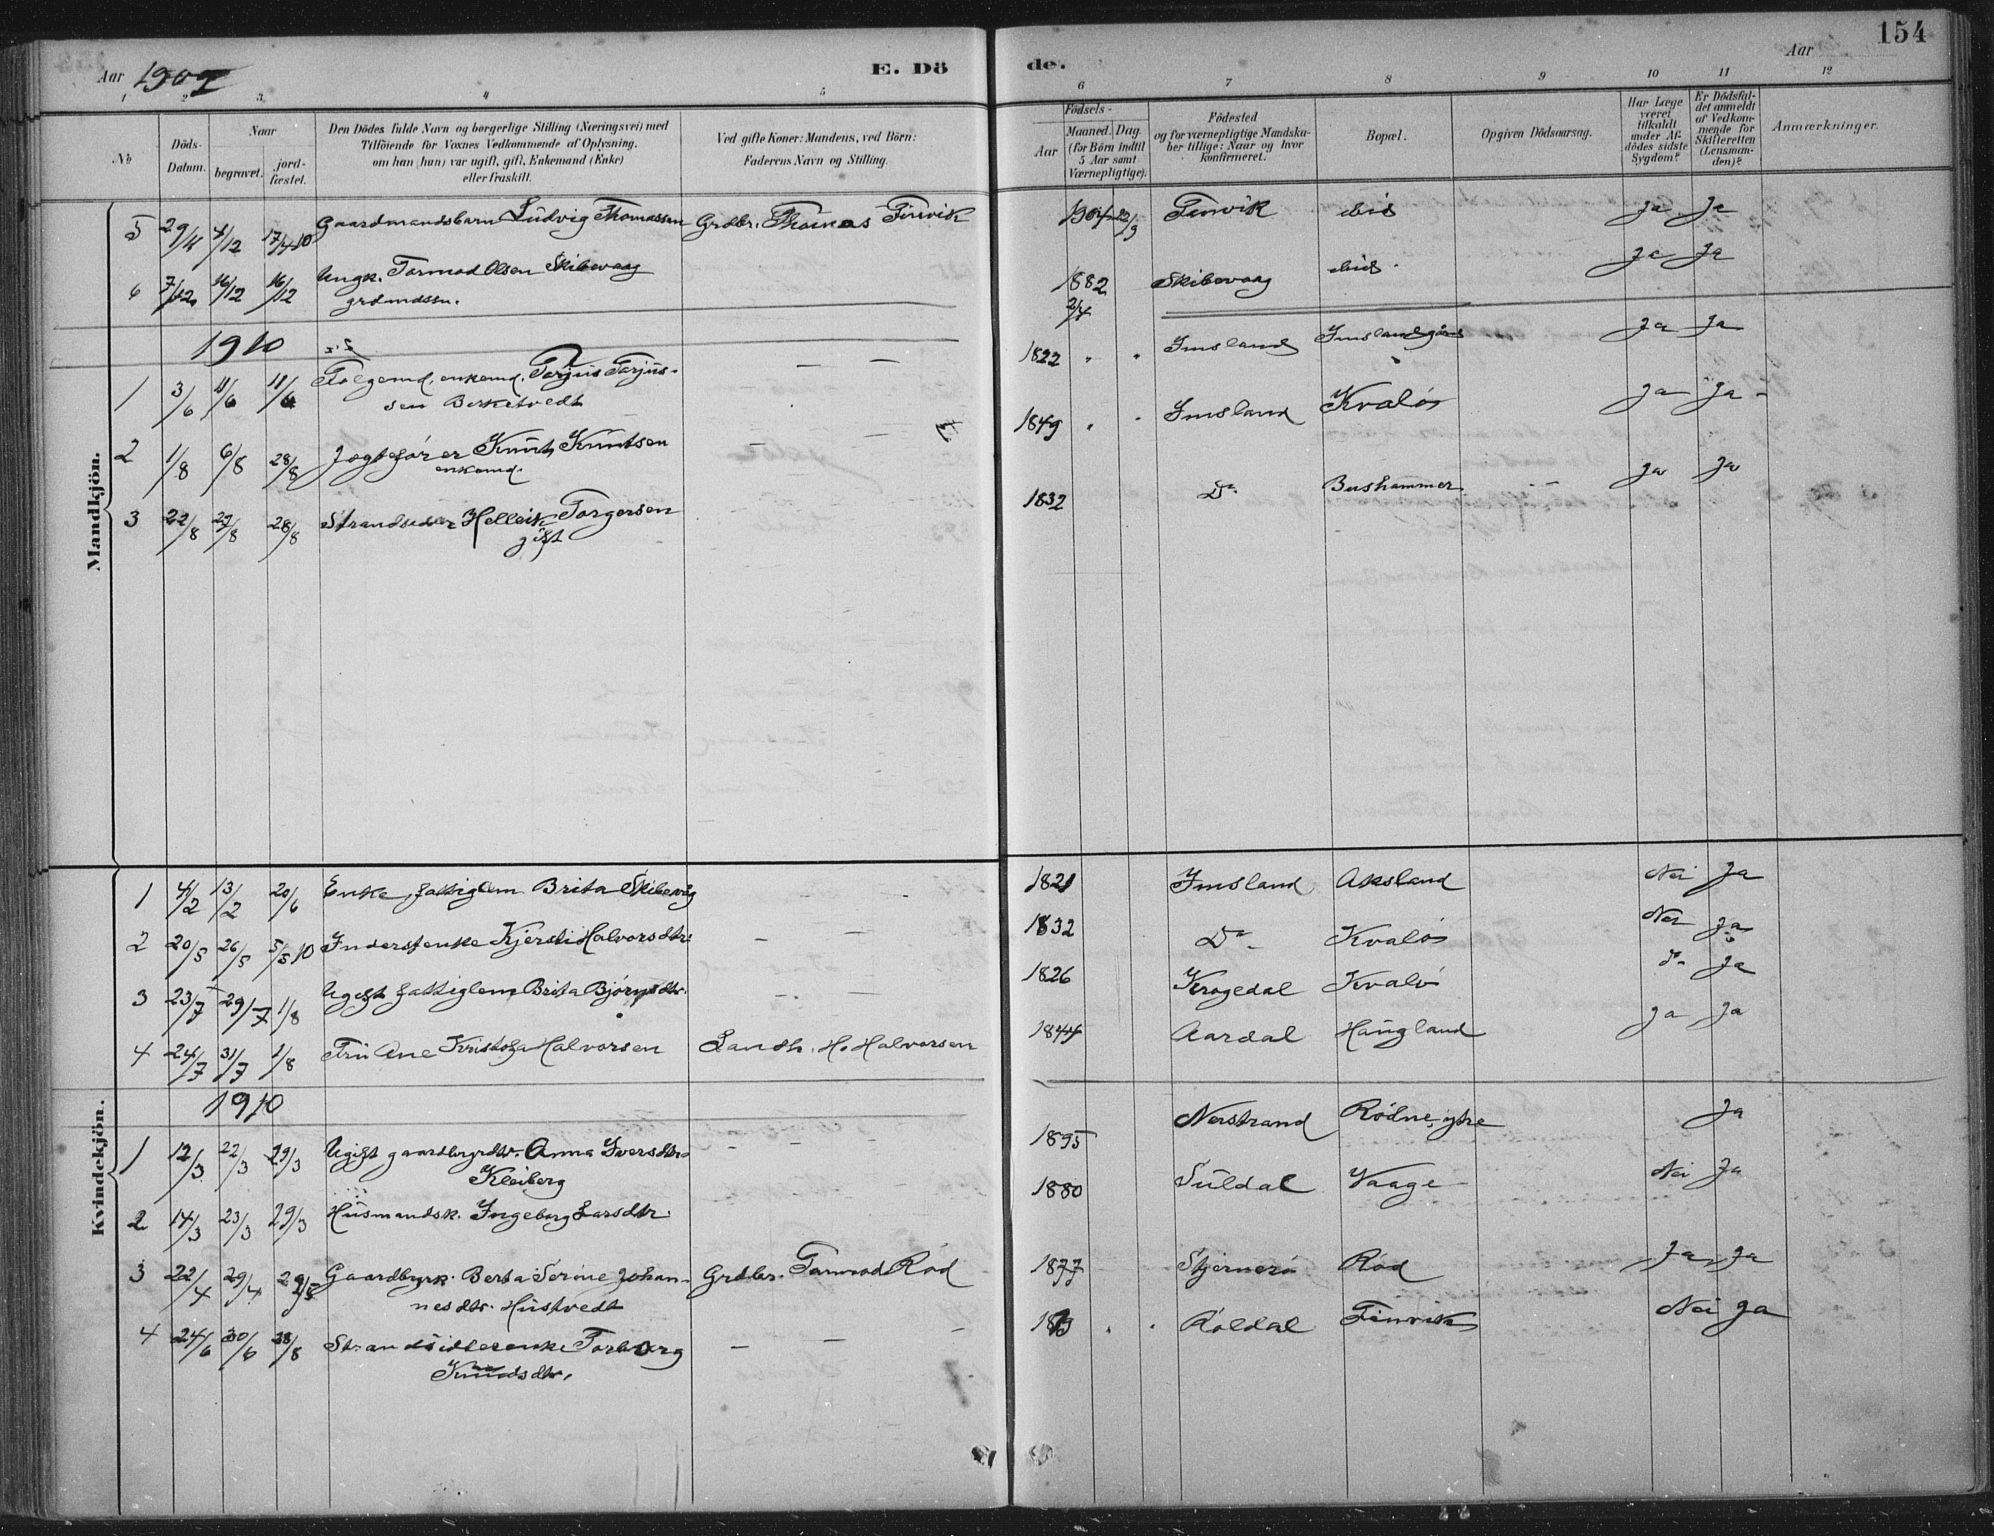 154
Aar 1909 E. Dö de. Aar
1 2 3. 4 5 6 7 8 9 10 11 12
No Döds-Datum. Naar begravet. jord-fæstet. Den Dödes fulde Navn og borgerlige Stilling (Næringsvei) med Tilföiende for Voxnes Vedkommende af Oplysning, om han (hun) var ugift, gift, Enkemand (Enke) eller fraskilt. Ved gifte Koner: Mandens, ved Börn: Faderens Navn og Stilling. Födsels- Aar Maaned. Dag. (for Börn indtil 5 Aar samt Værnepligtige). Födested og for værnepligtige Mandskaber tillige: Naar og hvor konfirmeret. Bopæl. Opgiven Dödsaarsag. Har Læge været tilkaldt under Afdödes sidste Sygdom? Er Dödsfaldet anmeldt af Vedkommende for Skifteretten (Lensmanden)? Anmærkninger.
Mandkjön.
5 29/11 4/12 17/4 10 Gaardmandsbarn Ludvig Thomassen Grdbr. Thomas Finvik 1904 /9 Finvik ibid Ja Ja
6 7/12 16/12 16/12 Ungk. Tormod Olsen Skibevaag 1882 2/4 Skibevaag ibid. Ja Ja
grdmdssn.
1910
1 3/6 11/6 11/6 Folgemd, enkemd. Torjus Torjus- — 1822 " " Imsland Imslandsjöen Ja Ja
sen Berketvedt
2 1/8 6/8 28/8 Jagtefører Knut Knutsen — 1849 " " Imsland Kvaløs Ja Ja
enkemd.
3 22/8 27/8 28/8 Strandsidder Helleik Torgersen 1832 Do Bushammer — Ja Ja
gift
Kvindekjön.
1 4/2 13/2 20/6 Enke, fattiglem Brita Skibevåg 1821 Imsland Aksland Nei Ja
2 20/5 26/5 5/5 10 Inderstenke Kjersti Halvorsdtr. — — 1832 Do Kvaløs Nei Ja
3 23/7 29/7 1/8 Ugift fattiglem Brita Bjørnsdtr. — — 1826 Krogedal Kvaløs Ja
4 24/7 31/7 1/8 Fru Ane Kristofa Halvorsen Landh. H. Halvorsen 1844 Aardal Haugland Ja Ja
1910
1 12/3 22/3 29/3 Ugift gaardbrgrdtr. Anna Iversdtr. — 1895 Nerstrand Rødne, ytre Ja
Kleiberg
2 14/3 23/3 29/3 Husmandsk. Ingeborg Larsdtr. 1880 Suldal Vaage Nei Ja
3 22/4 29/4 29/5 Gaardbrk. Berta Serine Johan- Grdbr. Tormod Rød 1877 Stjernerø Rød Ja Ja
nesdtr. Hustvedt
4 24/6 30/6 28/8 Strandsidderenke Torborg — — Røldal Finvik Nei Ja
Knudsdtr.